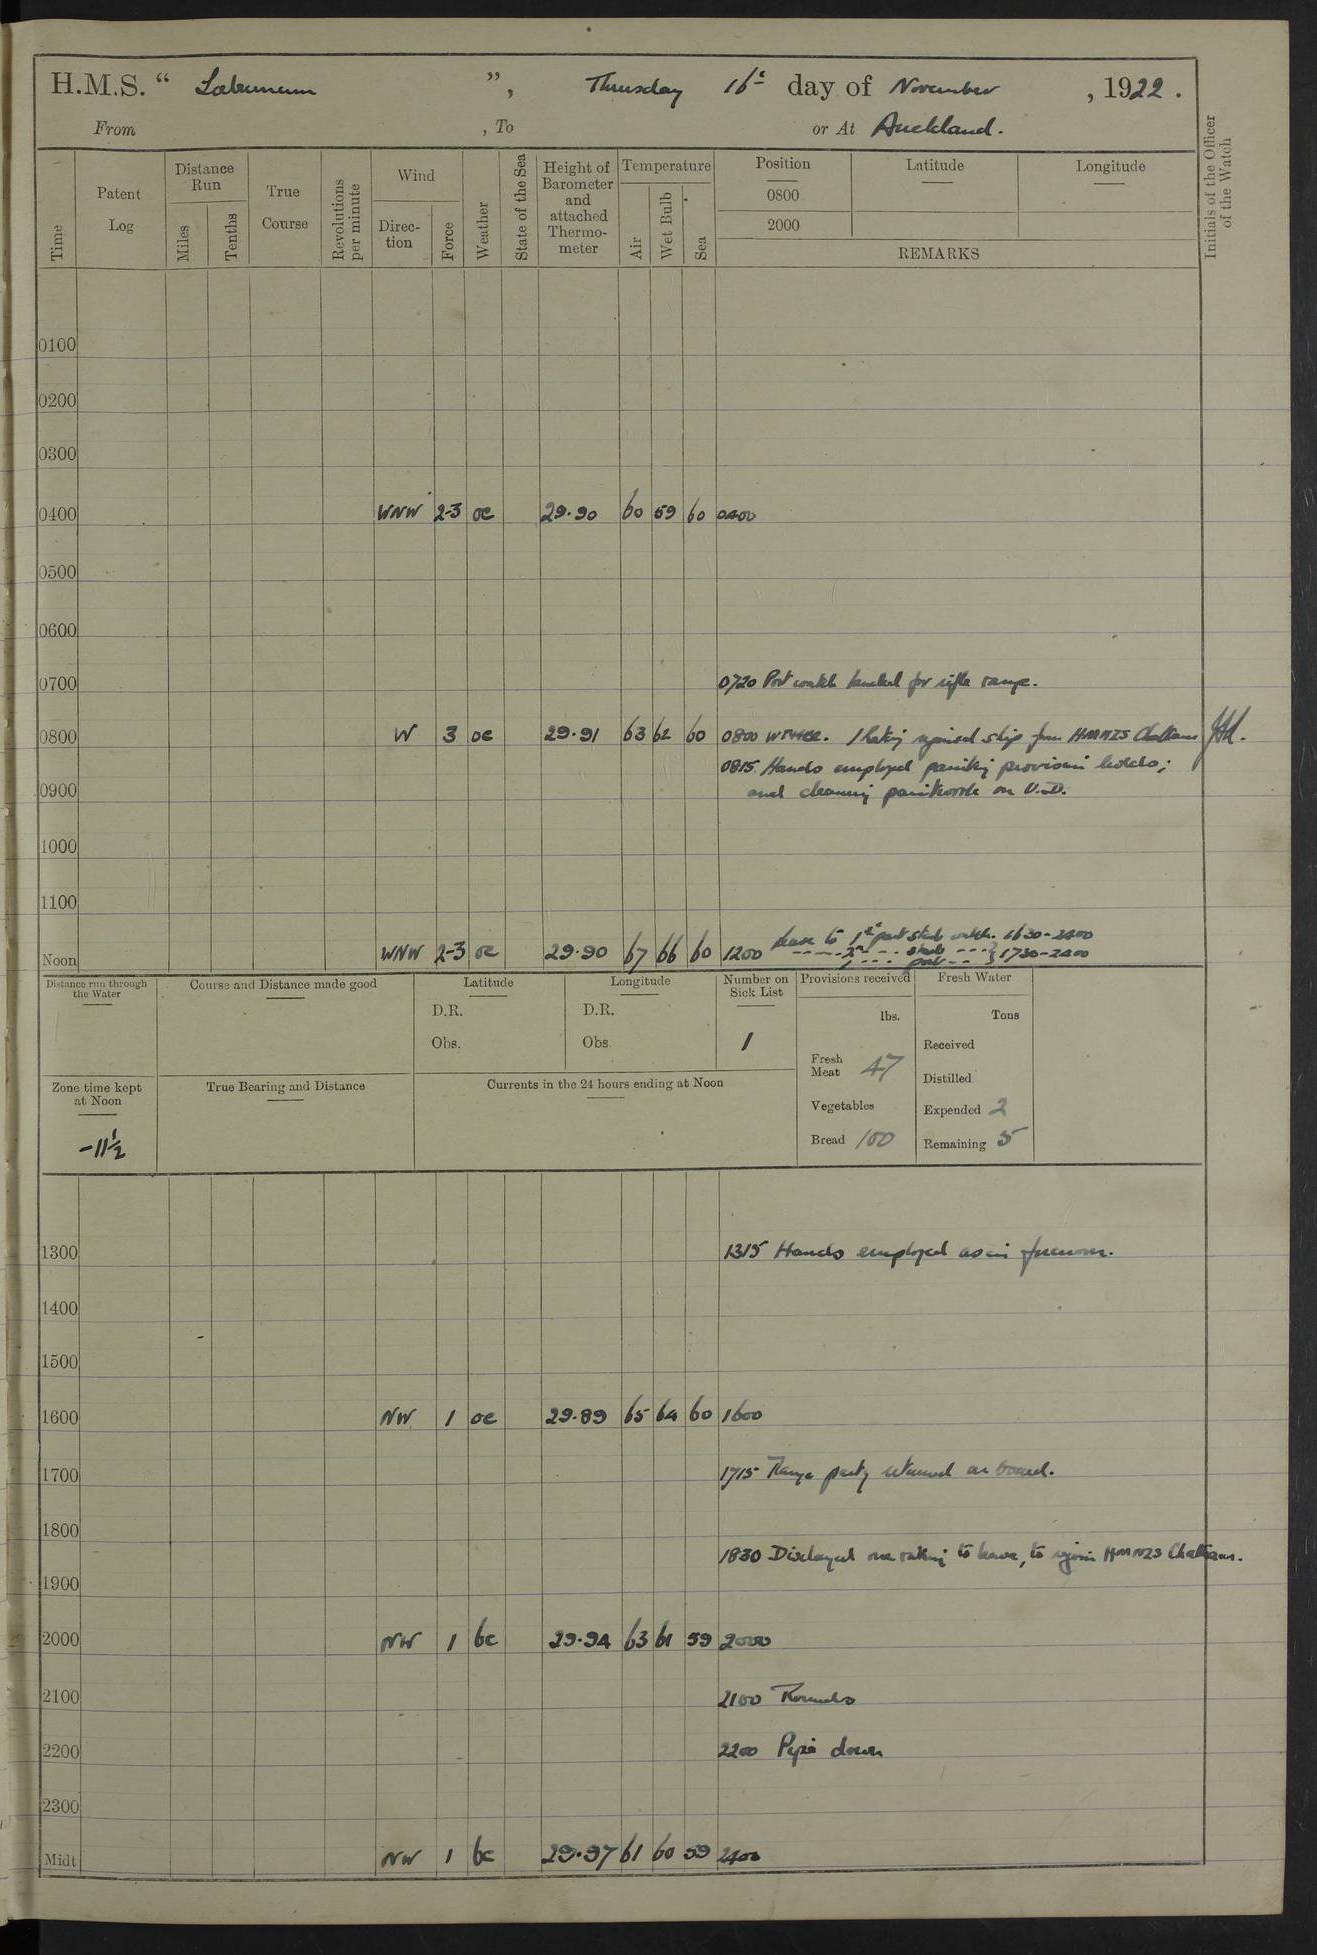 H.M.S. “ Laburnum ”, Thursday 16th day of November , 1922 .
From , To or At Auckland.
Time
Patent Log
Distance Run
Miles
Tenths
True Course
Revolutions per minute
Wind
Direc-tion
Force
Weather
State of the Sea
Height of Barometer and attached Thermo-meter
Temperature
Air
Wet Bulb
Sea
Position
Latitude
Longitude
0800
2000
REMARKS
Initials of the Officer of the Watch
0100
0200
0300
0400 WNW 2-3 oc 29.90 60 59 60 0400
0500
0600
0700 0720 Port watch landed for rifle range.
0800 W 3 oc 29.91 63 62 60 0800 1 Rating rejoined ship from HMNZS Chatham
0815 Hands employed painting provision holds;
0900 and cleaning paintwork on U.D.
1000
1100
Leave to 1st part stbd watch. 1630-2400
Noon WNW 2-3 oc 29.90 67 66 60 1200 2nd stbd 1730-2400
Distance run through the Water
Course and Distance made good
Latitude
D.R.
Obs.
Longitude
D.R.
Obs
Number on Sick List
1
Provisions received
lbs.
Fresh Meat 47
Vegetables
Bread 100
Fresh Water
Tons
Received
Distilled
Expended 2
Remaining 5
Zone time kept at Noon
-11½
True Bearing and Distance
Currents in the 24 hours ending at Noon
1300 1315 Hands employed as in forenoon.
1400
1500
1600 NW 1 oc 29.89 65 64 60 1600
1700 1715 Range party returned on board.
1800
1830 Discharged one rating to leave, to rejoin HMNZS Chatham.
1900
2000 NW 1 bc 29.94 63 61 59 2000
2100 2100 Rounds
2200 2200 Pipe down
2300
Midt NW 1 bc 29.97 61 60 59 2400